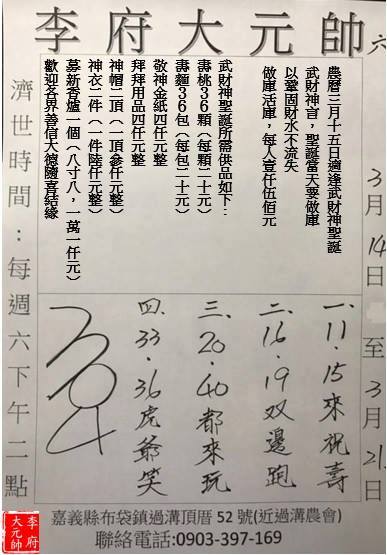 李府大元帥
六
3月14日至3月21日
農曆三月十五日適逢武財神聖誕
武財神言，聖誕當天要做庫
以鞏固財水不流失
做庫活庫，每人壹仟伍佰元
武財神聖誕所需供品如下：
壽桃36顆（每顆二十元）
壽麵36包（每包二十元）
敬神金紙四仟元整
拜拜用品四仟元整
神帽二頂（一頂參仟元整）
神衣二件（一件陸仟元整）
募新香爐一個（八寸八，一萬一仟元）
歡迎各界善信大德隨喜結緣
濟世時間：每週六下午二點
一、11.15來祝壽
二、16.19双邊跑
三、20.40都來玩
四、33.36虎爺笑
304
嘉義縣布袋鎮過溝頂厝52號(近過溝農會)
聯絡電話:0903-397-169
李府
大元帥